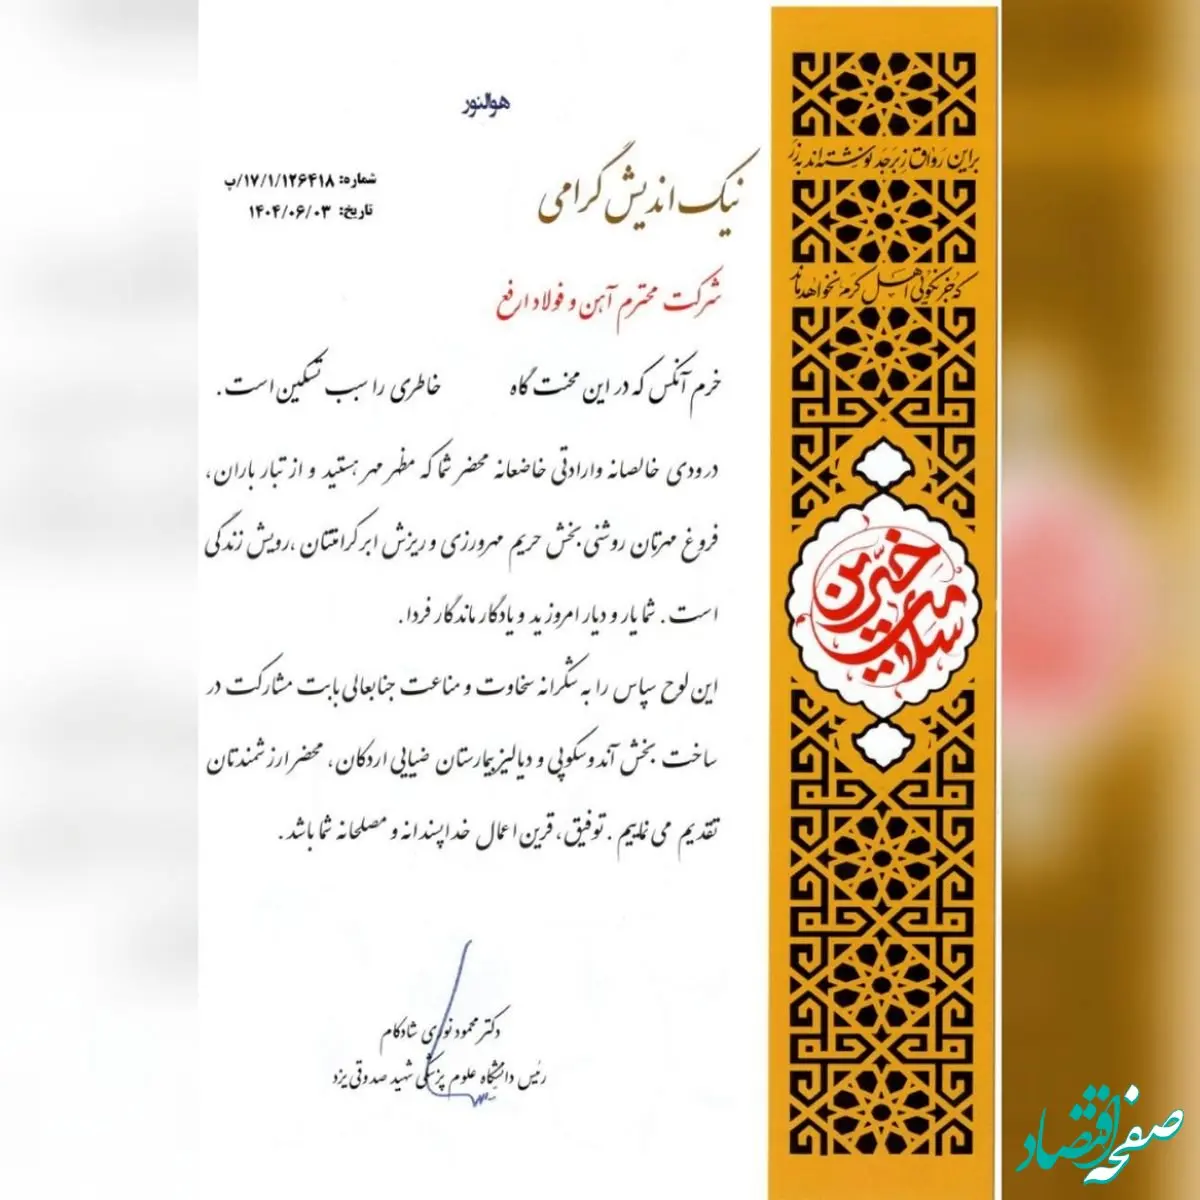 هوالنور
نیک اندیش گرامی
شماره: ۱۷/۱/۱۲۶۴۱۸/پ
تاریخ: ۱۴۰۴/۰۶/۰۳
شرکت محترم آهن و فولاد ارفع
خرم آنکس که در این محنت گاه خاطری را سبب تسکین است .
درودی خالصانه وارادتی خاضعانه محضر شما که مظهر مهر هستید و از تبار باران،
فروغ مهرتان روشنی بخش حریم مهرورزی و ریزش ابر کرامتتان ،رویش زندگی
است . شما یار و دیار امروزید و یادگار ماندگار فردا.
این لوح سپاس را به شکرانه سخاوت و مناعت جنابعالی بابت مشارکت در
ساخت بخش آندوسکوپی و دیالیز بیمارستان ضیایی اردکان، محضر ارزشمندتان
تقدیم می نماییم . توفیق، قرین اعمال خداپسندانه و مصلحانه شما باشد .
دکتر محمود نوری شادکام
رئیس دانشگاه علوم پزشکی شهید صدوقی یزد
براین رواق زبرجد نوشته‌اند به زر
که جز نکوئی اهل کرم نخواهد ماند
خیرین
سلامت
صفحه اقتصاد